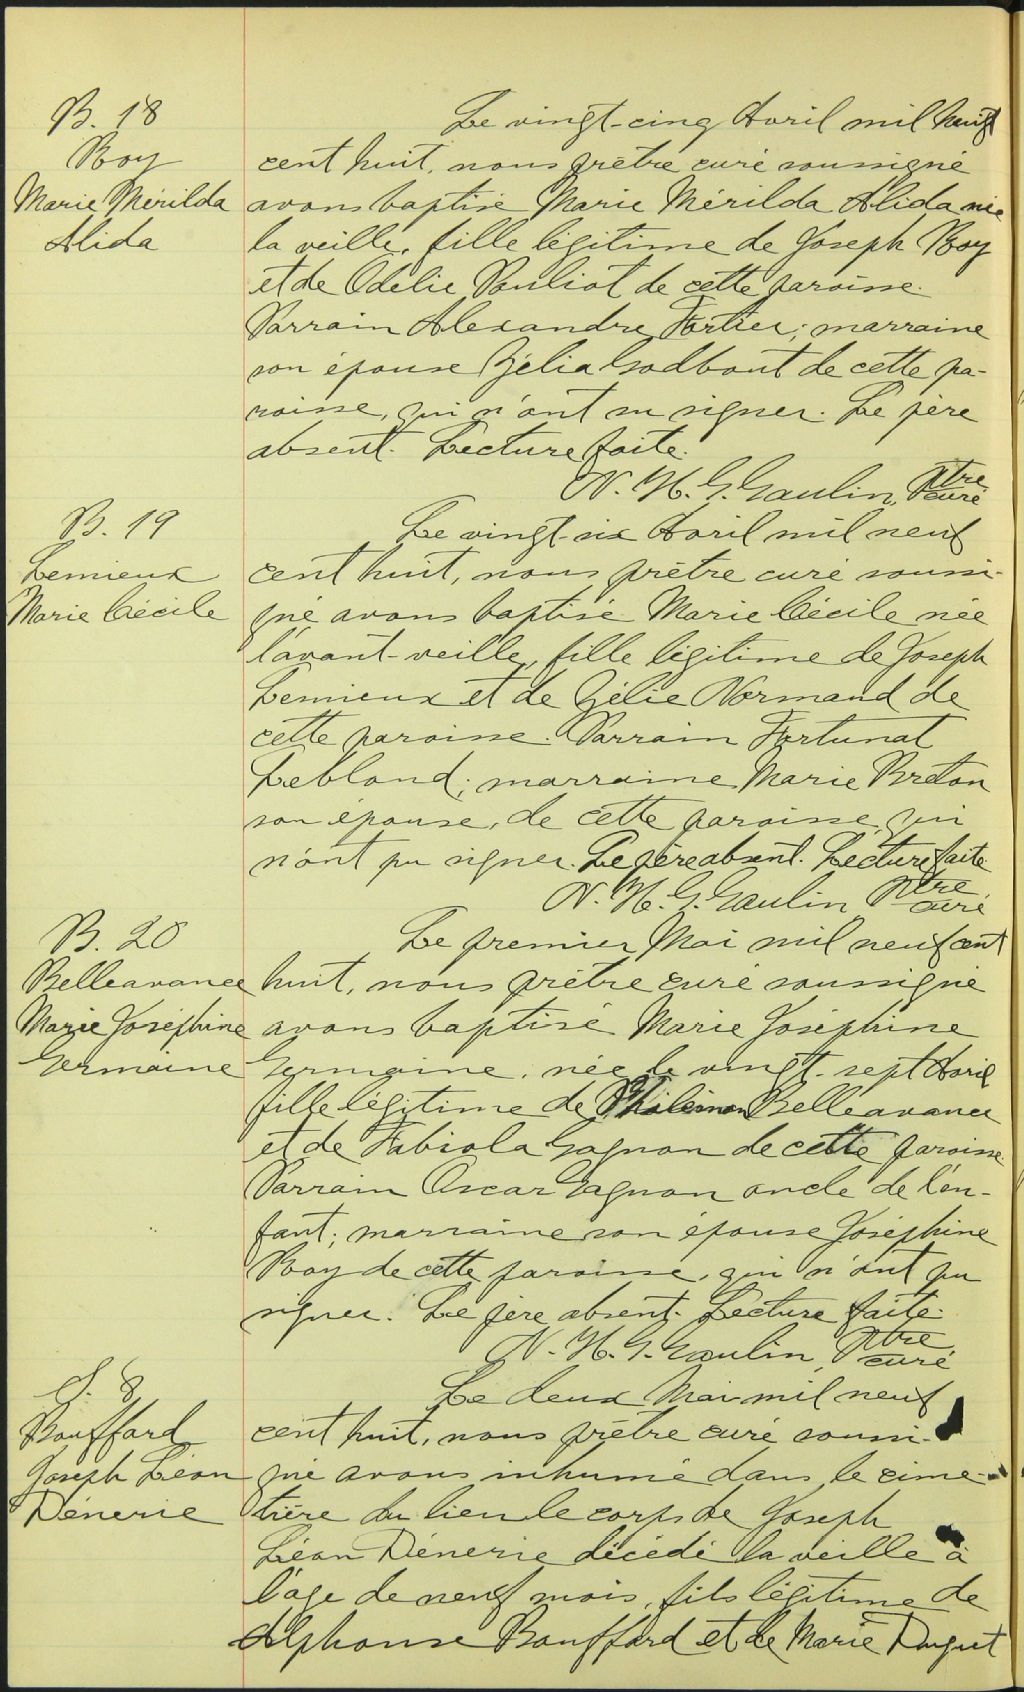 B. 18
Roy
Marie Mérilda
Alida
Le vingt-cinq Avril mil huit
cent huit, nous prêtre curé soussigné
avons baptisé Marie Mérilda Alida née
la veille, fille légitime de Joseph Roy
et de Odélie Pouliot de cette paroisse.
Parrain Alexandre Fortier; marraine
son épouse Zélia Godbout de cette pa-
roisse, qui n'ont su signer. Le père
absent. Lecture faite.
N. H. G. Gaulin, Ptre curé
B. 19
Lemieux
Marie Cécile
Le vingt-six Avril mil neuf
cent huit, nous prêtre curé soussi-
gné avons baptisé Marie Cécile née
l'avant-veille, fille légitime de Joseph
Lemieux et de Zélie Normand de
cette paroisse. Parrain Fortunat
Leblond; marraine Marie Breton
son épouse, de cette paroisse, qui
n'ont pu signer. Le père absent. Lecture faite
N. H. G. Gaulin Ptre curé
B. 20
Belleavance
Marie Joséphine
Germaine
Le premier Mai mil neuf cent
huit, nous prêtre curé soussigné
avons baptisé Marie Joséphine
Germaine, née le vingt-sept Avril
fille légitime de Philémon Belleavance
et de Fabiola Gagnon de cette paroisse.
Parrain Oscar Gagnon oncle de l'en-
fant; marraine son épouse Joséphine
Roy de cette paroisse, qui n'ont pu
signer. Le père absent. Lecture faite.
N. H. G. Gaulin, Ptre curé
S. 8
Bouffard
Joseph Léon
Dénerie
Le deux Mai mil neuf
cent huit, nous prêtre curé soussi-
gné avons inhumé dans le cime-
tière du lieu le corps de Joseph
Léon Dénerie décédé la veille à
l'age de neuf mois, fils légitime de
Alphonse Bouffard et de Marie Duguet